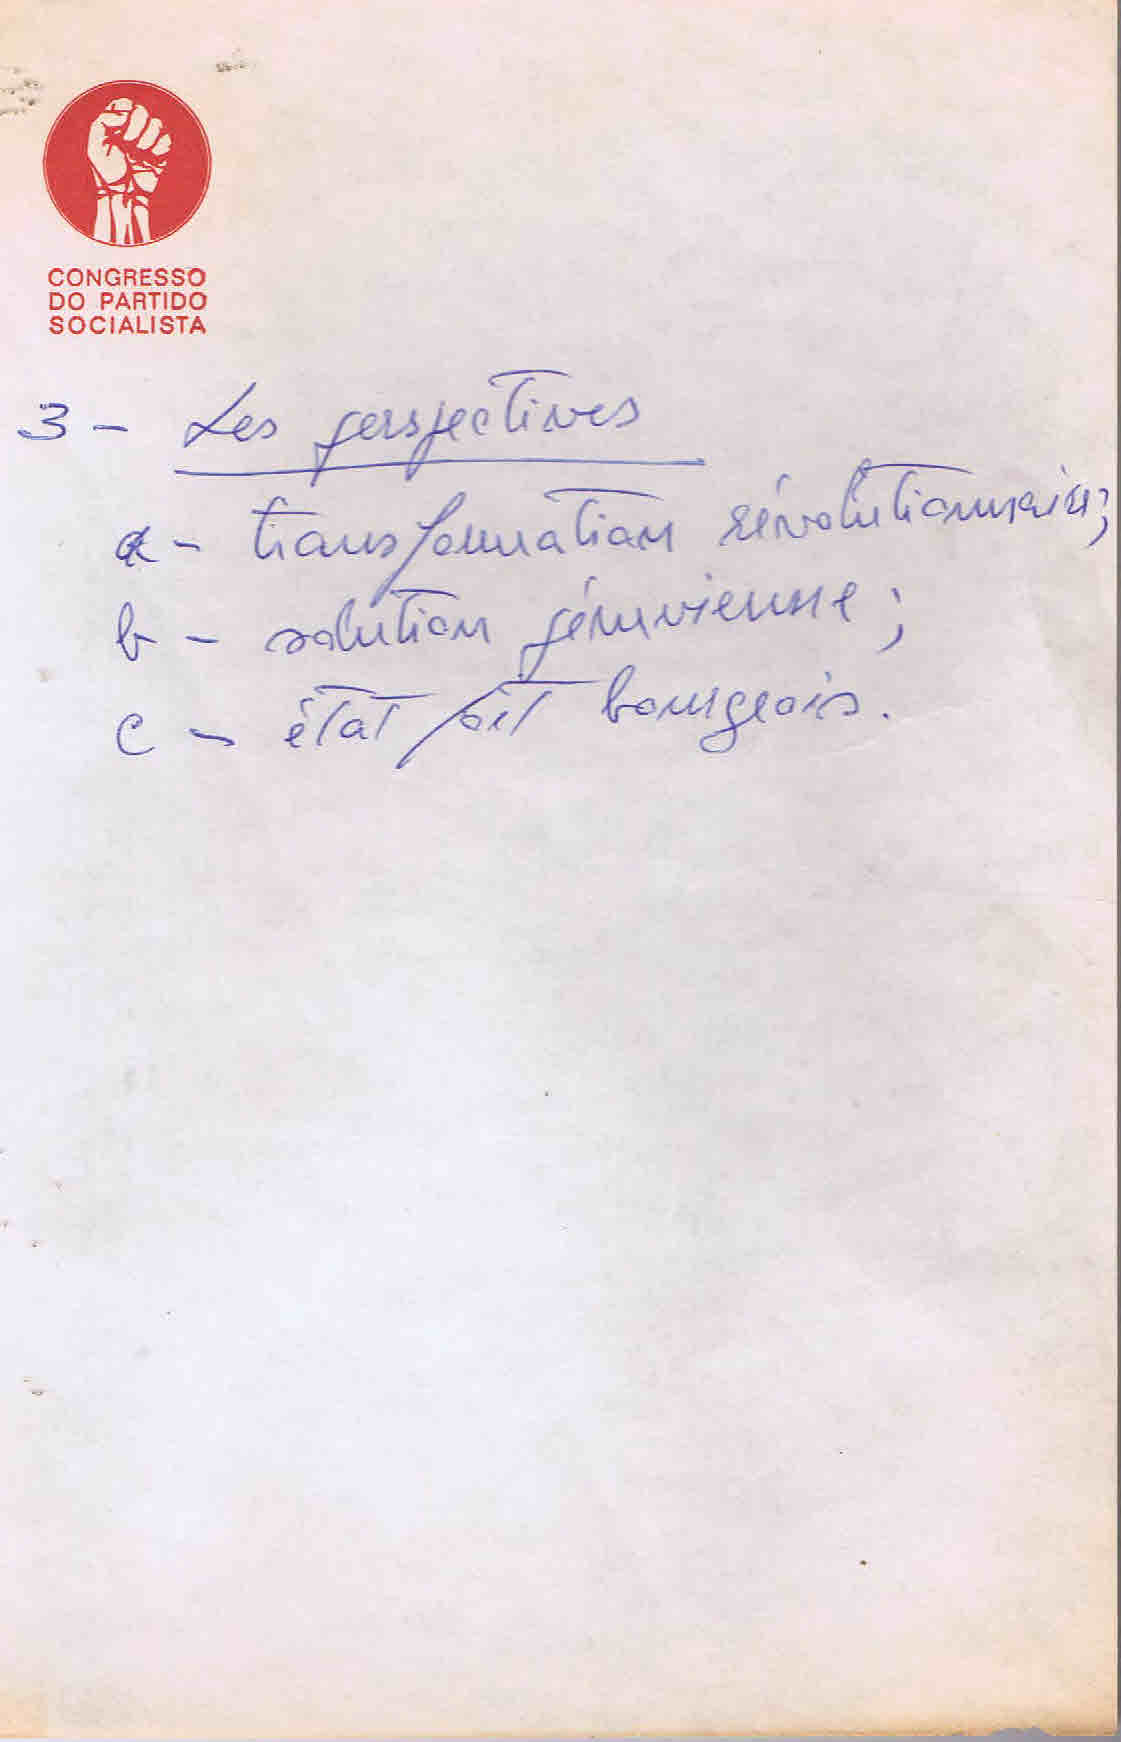 CONGRESSO
DO PARTIDO
SOCIALISTA
3 - Les perspectives
a - transformation révolutionnaire;
b - solution péruvienne;
c - état fort bourgeois.